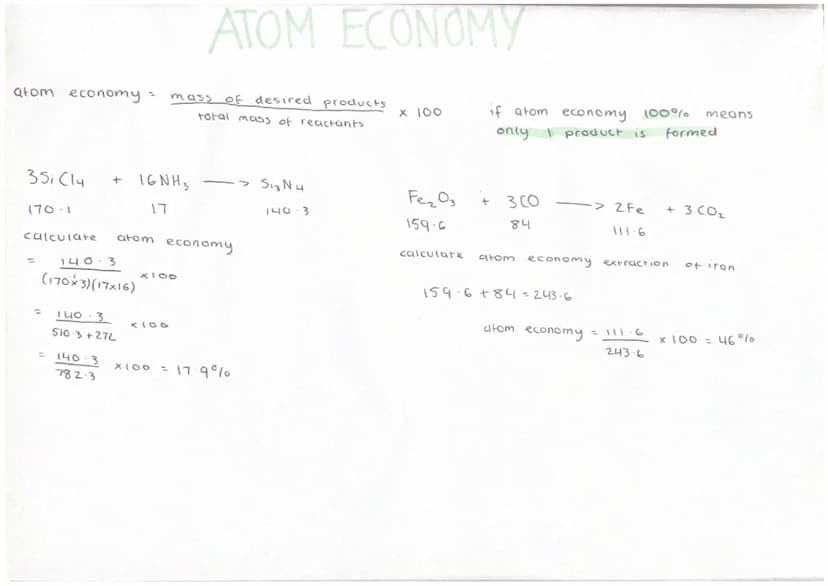 ATOM ECONOMY
atom economy = mass of desired products / total mass of reactants × 100
if atom economy 100% means
only 1 product is formed
3SiCl4 + 16NH3 —> Si3N4
170.1 17 140.3
calculate atom economy
= 140.3 / (170.1×3)(17×16) ×100
= 140.3 / 510.3 + 272 ×100
= 140.3 / 782.3 ×100 = 17.9%
Fe2O3 + 3CO —> 2Fe + 3CO2
159.6 84 111.6
calculate atom economy extraction of iron
159.6 + 84 = 243.6
atom economy = 111.6 / 243.6 × 100 = 46%